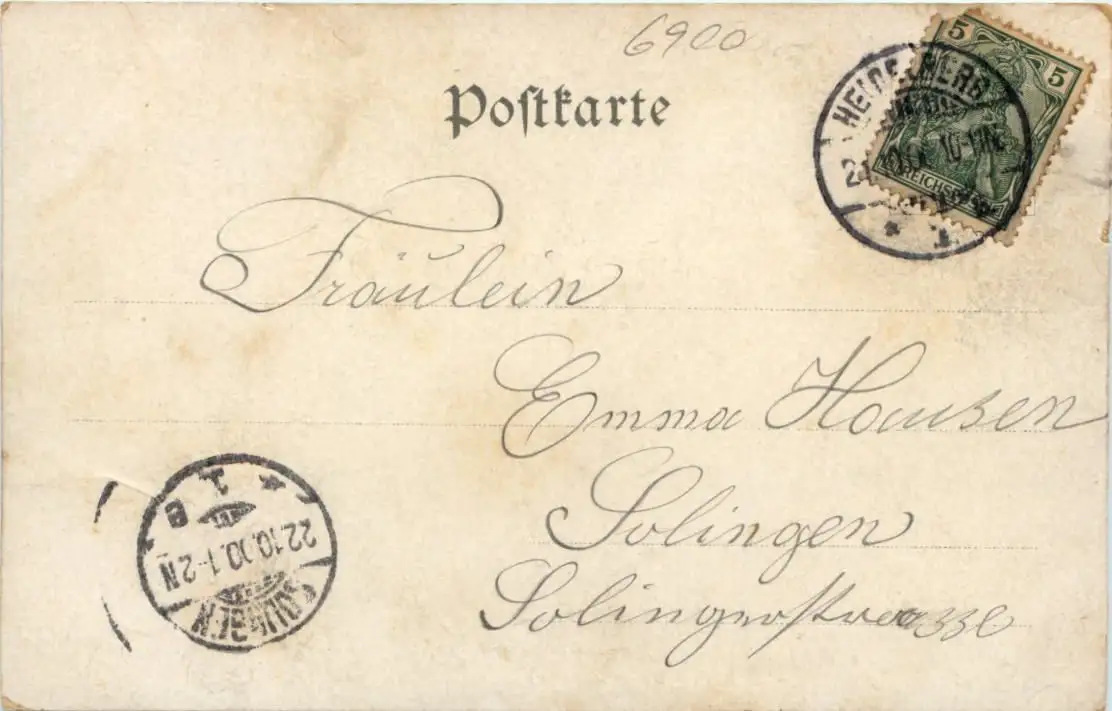 6900
Postkarte
5 5
HEIDELBERG
10-11N.
REICHSPOST
* 1.
Fräulein
Emma Hausen
Solingen
Solingerstrasse
* 1 e
22.10.00.1-2N
SOLINGEN